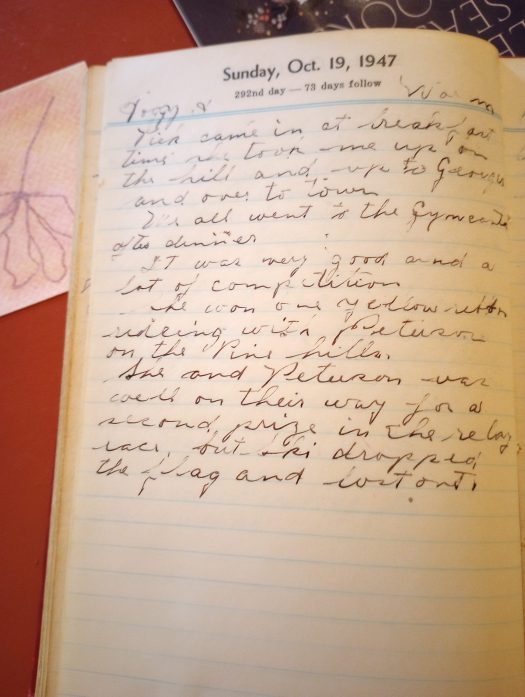 LEL
SEAS
OOK
Sunday, Oct. 19, 1947
292nd day — 73 days follow
Foggy & Warm
Dick came in at breakfast
time she took me up on
the hill and up to Georges
and over to Town
We all went to the
after dinner
IT was very good and a
lot of competition
she won one yellow ribbon
rideing with Peterson
on the Pine hills.
She and Peterson was
well on their way for a
second prize in the relay
race, but Ski dropped
the flag and lost out.